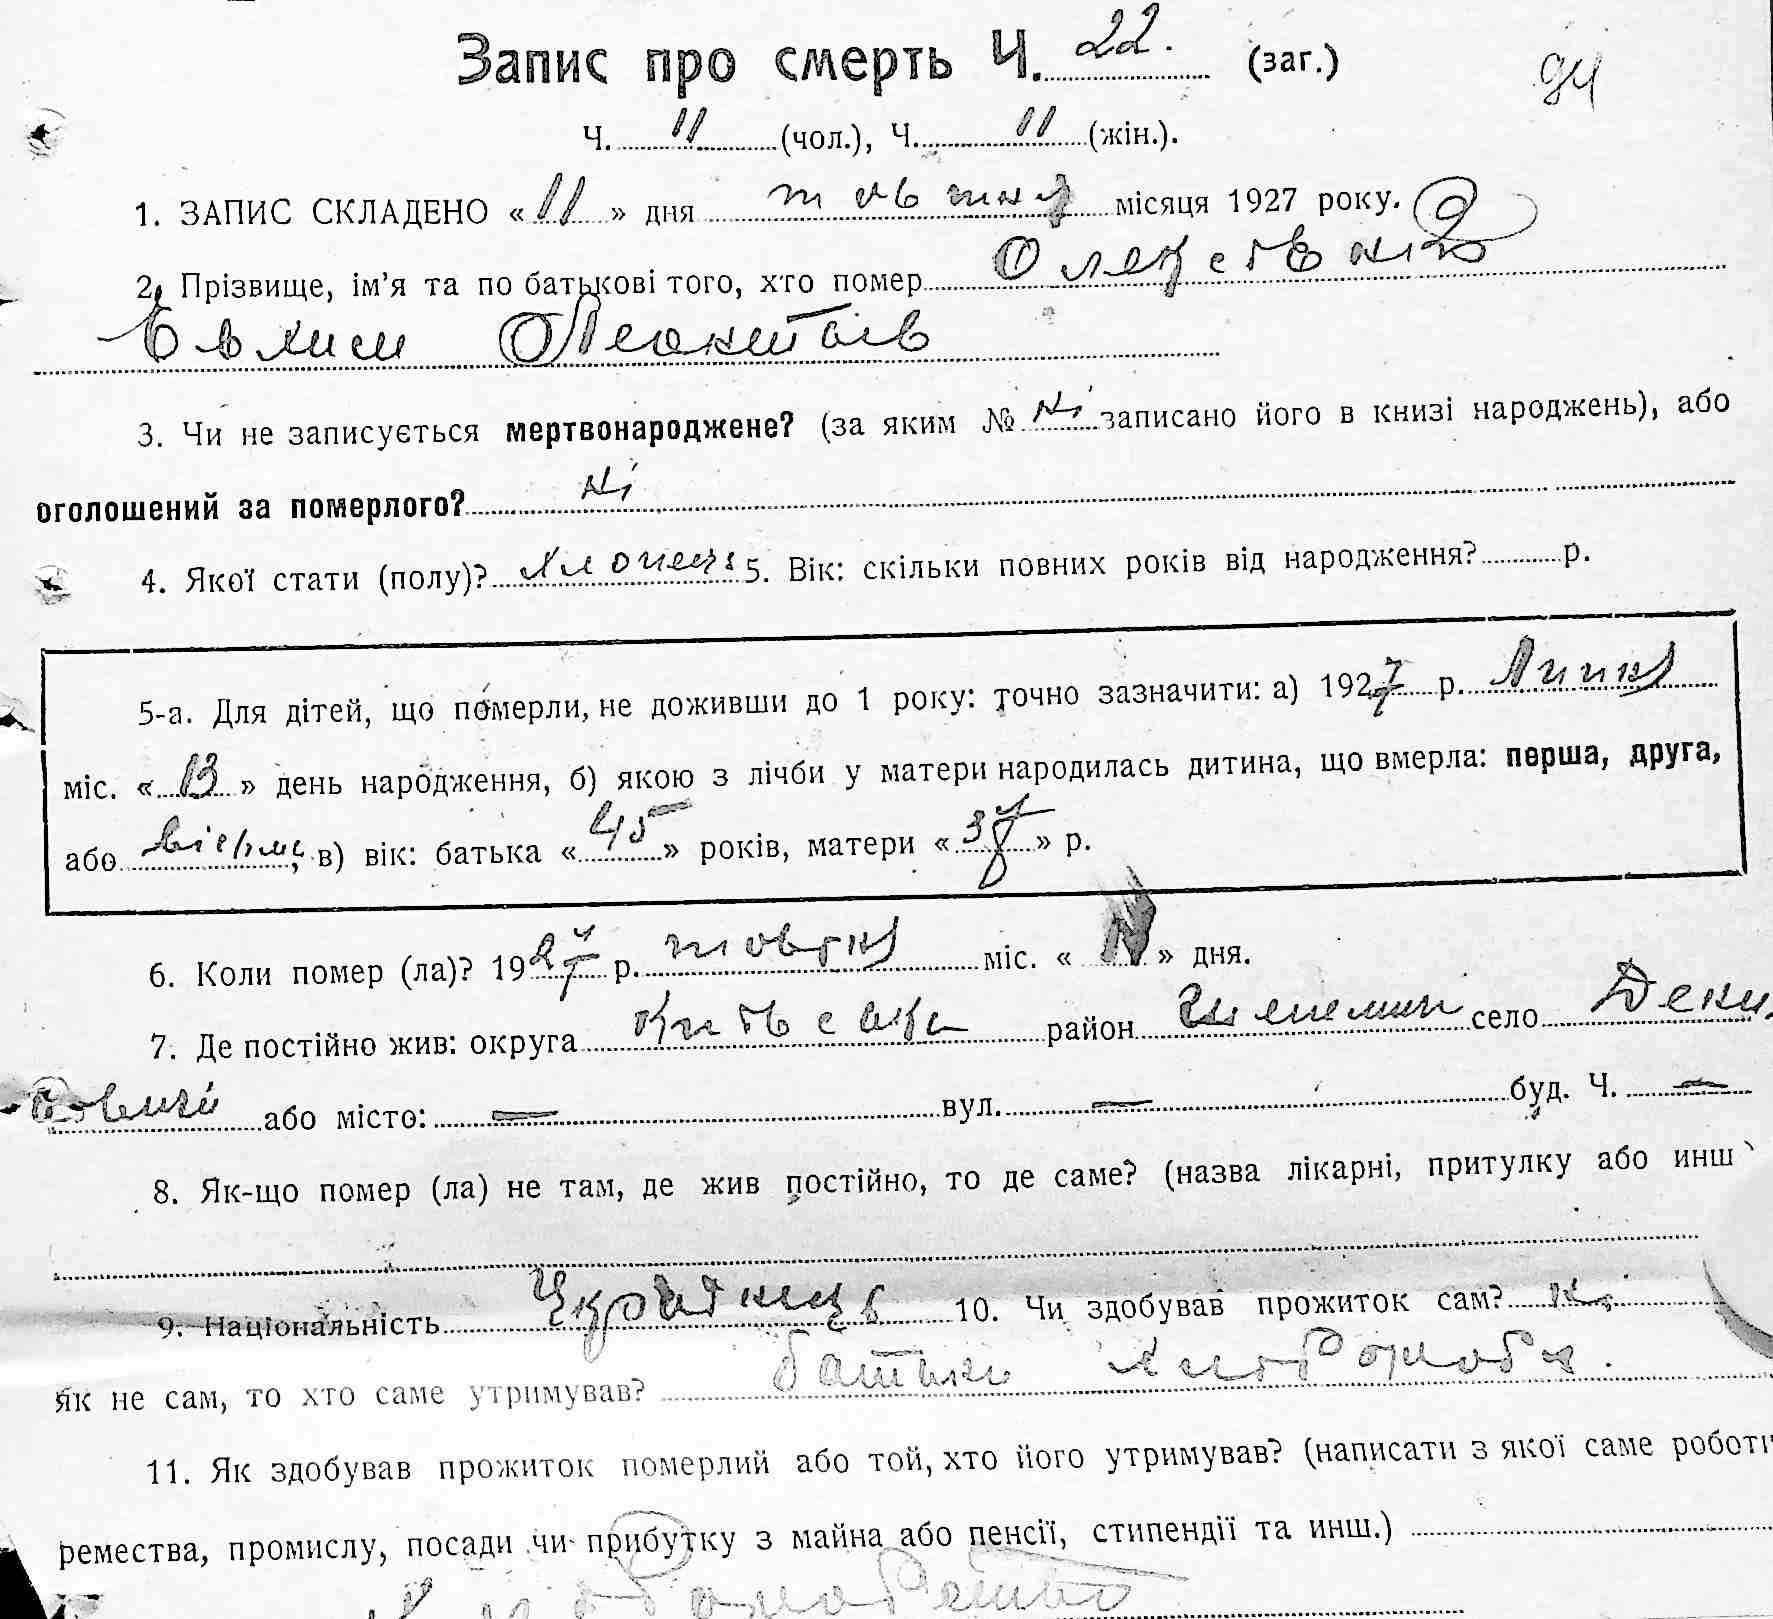 Запис про смерть Ч. 22. (заг.)
94
Ч. 11 (чол.), Ч. 11 (жін.).
1. ЗАПИС СКЛАДЕНО « 11 » дня товтня місяця 1927 року.
2. Прізвище, ім'я та по батькові того, хто помер
3. Чи не записується мертвонароджене? (за яким № ні записано його в книзі народжень), або
оголошений за померлого? ні
4. Якої стати (полу)? хлопець 5. Вік: скільки повних років від народження? р.
5-а. Для дітей, що померли, не доживши до 1 року: точно зазначити: а) 1927 р. Липня
міс. « 13 » день народження, б) якою з лічби у матери народилась дитина, що вмерла: перша, друга,
або в) вік: батька « 45 » років, матери « 37 » р.
6. Коли помер (ла)? 1927 р. товтня міс. « » дня.
7. Де постійно жив: округа район село
або місто: — вул. — буд. Ч. —
8. Як-що помер (ла) не там, де жив постійно, то де саме? (назва лікарні, притулку або инш
9. Національність 10. Чи здобував прожиток сам? ні
Як не сам, то хто саме утримував? батько хлібороб
11. Як здобував прожиток померлий або той, хто його утримував? (написати з якої саме роботи
ремества, промислу, посади чи прибутку з майна або пенсії, стипендії та инш.)